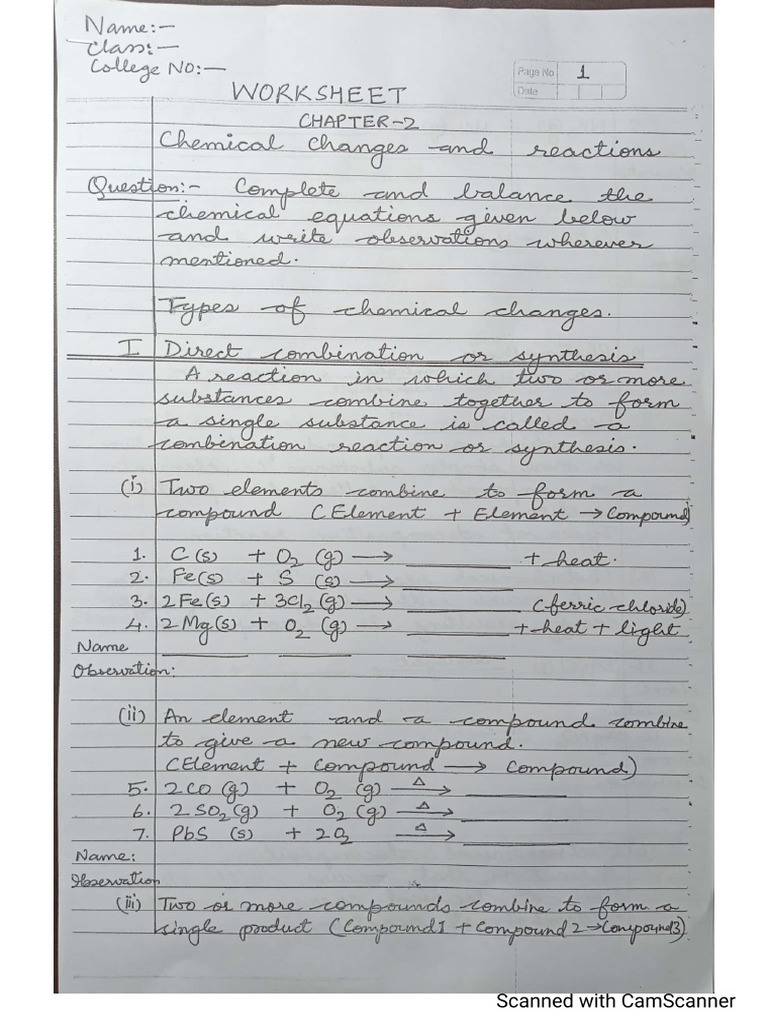 Name:-
Class:-
College NO:-
Page No 1
Date
WORKSHEET
CHAPTER-2
Chemical changes and reactions
Question:- Complete and balance the
chemical equations given below
and write observations wherever
mentioned.
Types of chemical changes.
I Direct combination or synthesis
A reaction in which two or more
substances combine together to form
a single substance is called a
combination reaction or synthesis.
(i) Two elements combine to form a
compound (Element + Element → Compound)
1. C (s) + O₂ (g) → ________ + heat.
2. Fe(s) + S (s) → ________
3. 2Fe(s) + 3Cl₂(g) → ________ (ferric chloride)
4. 2Mg(s) + O₂ (g) → ________ + heat + light
Name ________ ________ ________
Observation:
(ii) An element and a compound combine
to give a new compound.
(Element + Compound → Compound)
5. 2CO (g) + O₂ (g) △→ ________
6. 2SO₂(g) + O₂(g) △→ ________
7. PbS (s) + 2O₂ △→ ________
Name:
Observation
(iii) Two or more compounds combine to form a
single product (Compound1 + Compound 2→Compound3)
Scanned with CamScanner